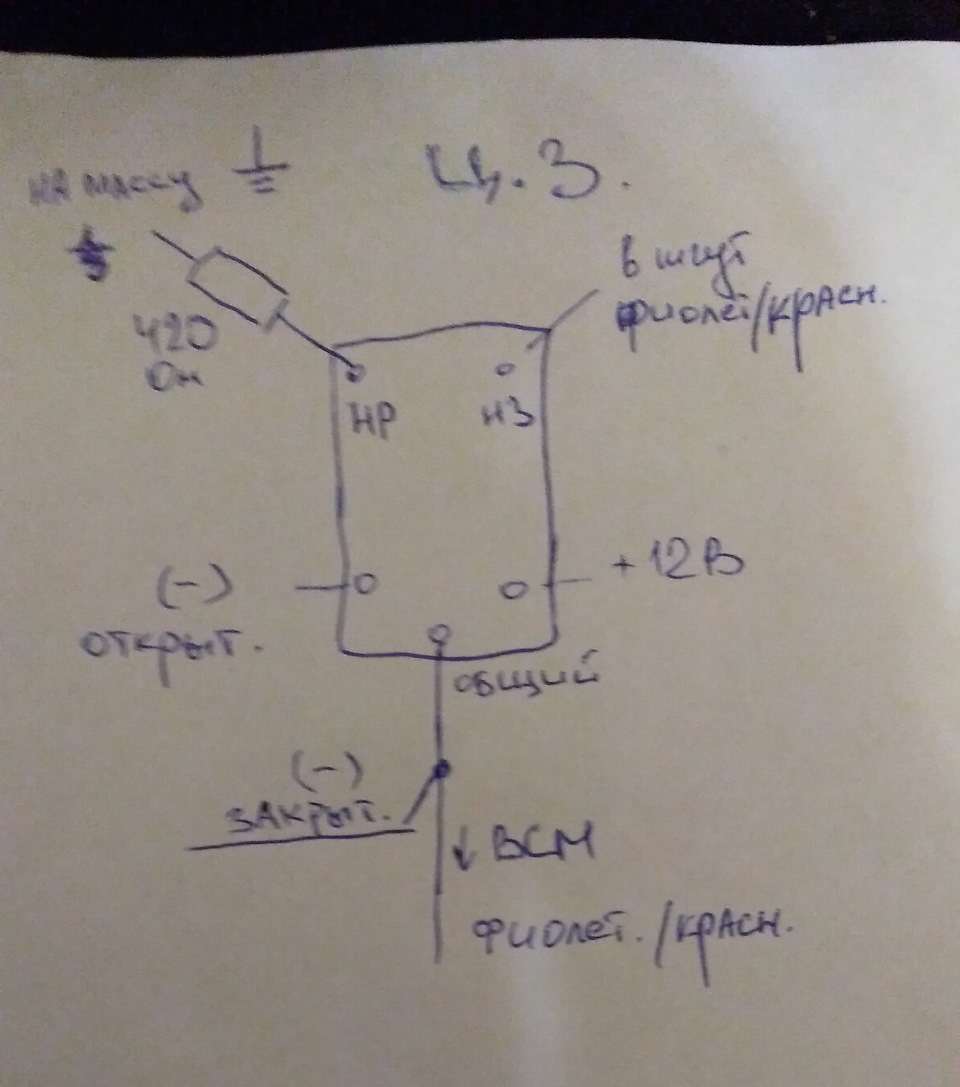 на массу
Ц.З.
в жгут
фиолет/красн.
420
Ом
НР
НЗ
(-)
открыт.
+12В
общий
(-)
закрыт.
↓ BCM
фиолет./красн.